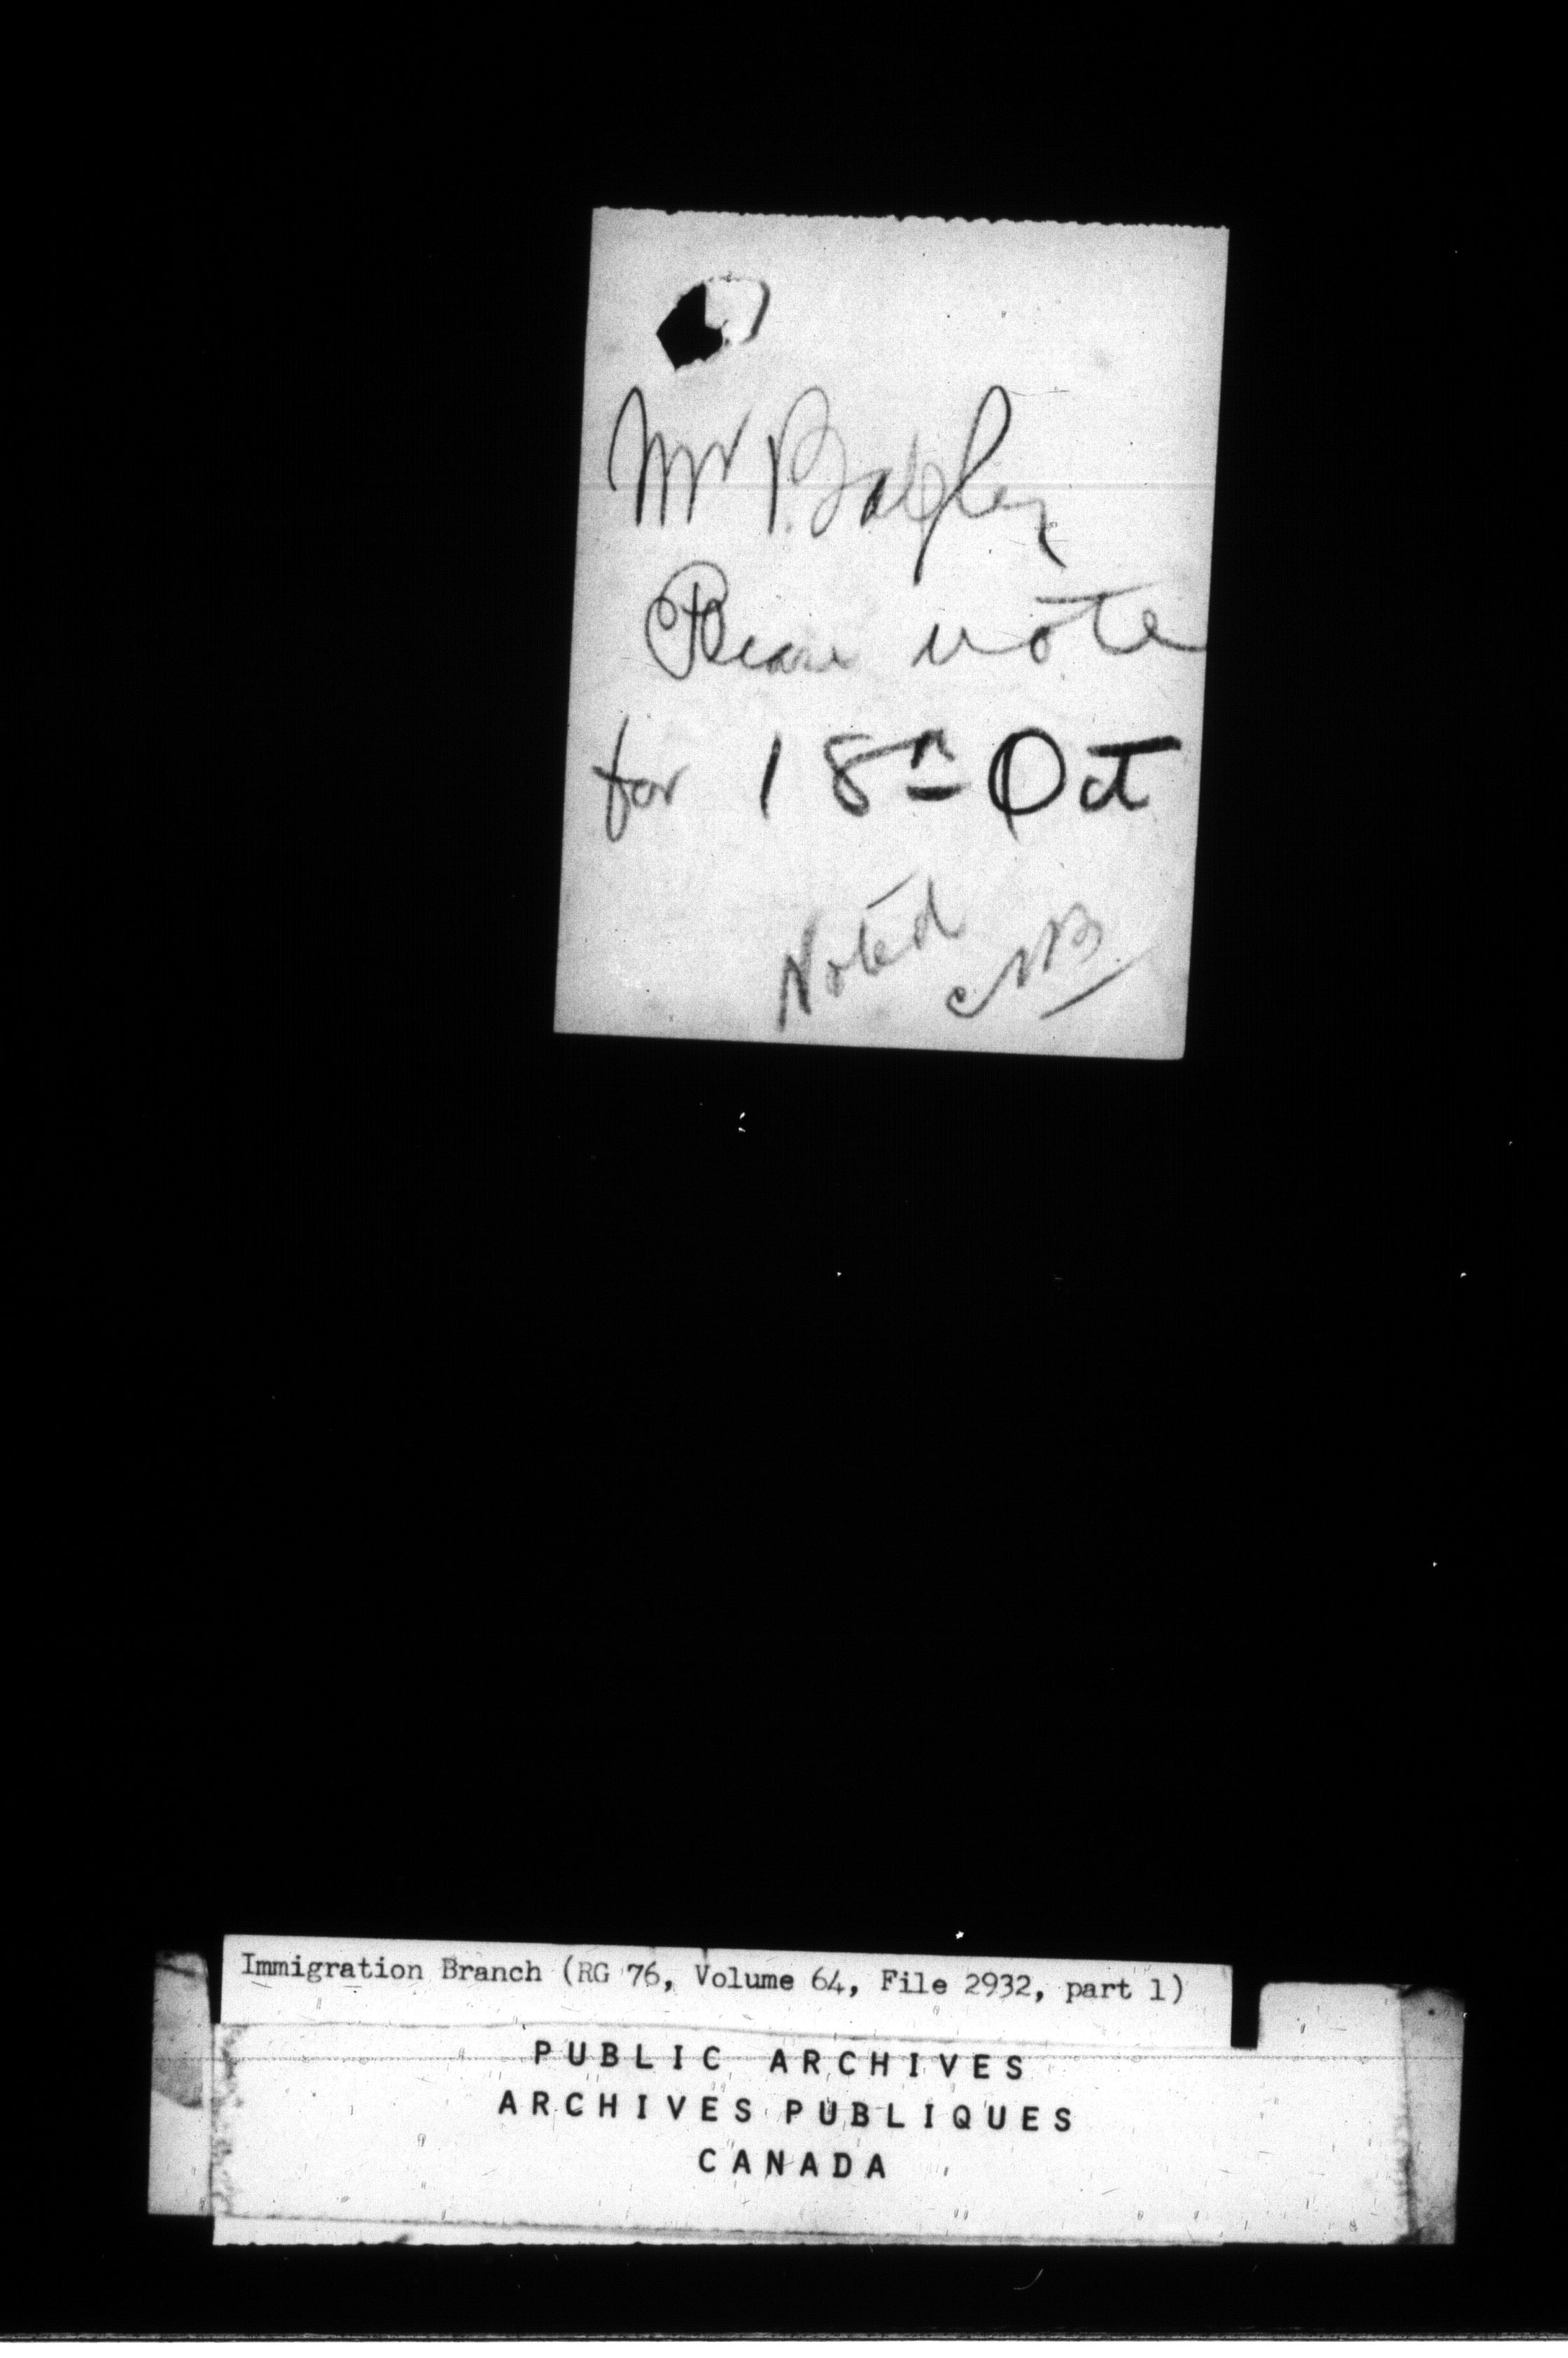 Mr
Please note
for 18th Oct
Noted
Immigration Branch (RG 76, Volume 64, File 2932, part 1)
PUBLIC ARCHIVES
ARCHIVES PUBLIQUES
CANADA